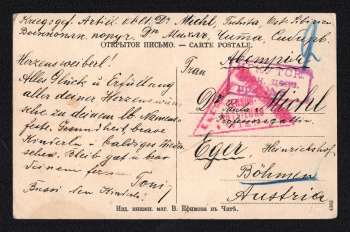 Kriegsgef. Artill. Oblt. Dr. Michl, Tschita, Ost-Sibirien
Военноплѣн. поруч. Др. Михль. Чита Сибирь.
ОТКРЫТОЕ ПИСЬМО. — CARTE POSTALE.
Австрія
Herzensweiberl!
Alles Glück u. Erfüllung
aller deiner Herzenswün-
sche zu deinem lb. Namens-
feste. Gesundheit, brave
Kinderln u. baldiges Wieder-
sehen. Bleib gut u. brav
deinem fernen
Toni
Bussi den Kinderln!
Frau
Dr. Paula Michl
Professorsgattin
Eger, Heinrichshof,
Böhmen
Austria
Изд. книжн. маг. В. Ефимова въ Читѣ.